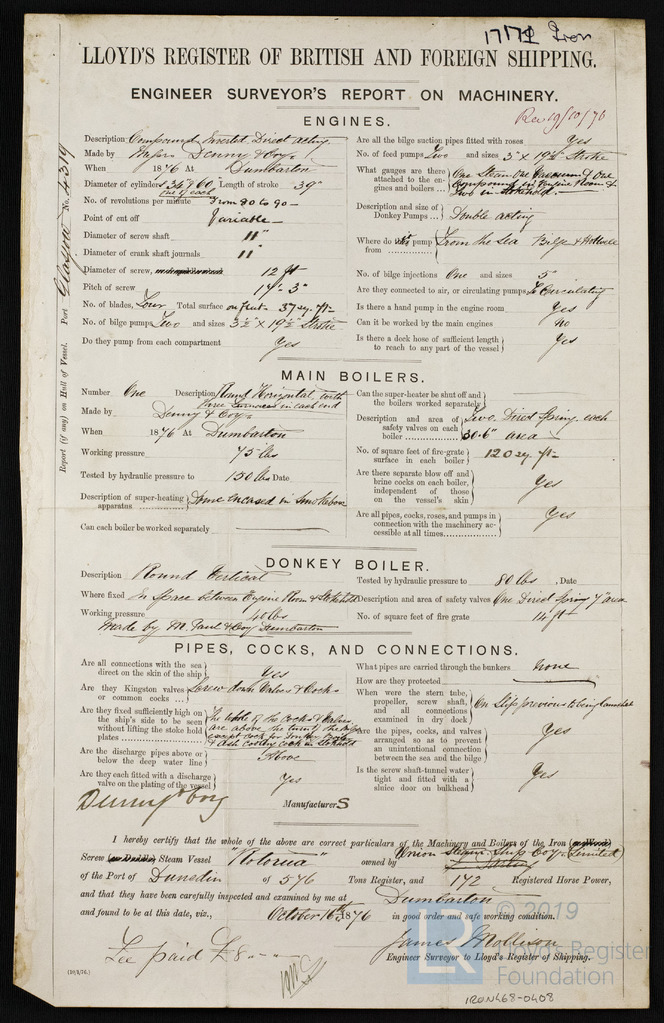 Iron
LLOYD'S REGISTER OF BRITISH AND FOREIGN SHIPPING.
ENGINEER SURVEYOR'S REPORT ON MACHINERY.
Rec 19/10/76
Report (if any) on Hull of Vessel. Port Glasgow No. 4319
ENGINES.
Description Compound Inverted Direct Acting
Made by Messrs Denny & Coy.
When 1876 At Dumbarton
Diameter of cylinders 34" & 60" Length of stroke 39"
one of each
No. of revolutions per minute From 80 to 90
Point of cut off Variable
Diameter of screw shaft 11"
Diameter of crank shaft journals 11"
Diameter of screw, 12 ft
Pitch of screw 17'-3"
No. of blades, Four Total surface on feet 37 sq. ft
No. of bilge pumps Two and sizes 3½" x 19½" Stroke
Do they pump from each compartment Yes
Are all the bilge suction pipes fitted with roses Yes
No. of feed pumps Two and sizes 3" x 19½" Stroke
What gauges are there attached to the engines and boilers One Steam One Vacuum & One Compound in Engine Room & Two in Stokehold
Description and size of Donkey Pumps Double acting
Where do pump from From the Sea Bilge & Hotwell
No. of bilge injections One and sizes 5"
Are they connected to air, or circulating pumps To Circulating
Is there a hand pump in the engine room Yes
Can it be worked by the main engines No
Is there a deck hose of sufficient length to reach to any part of the vessel Yes
MAIN BOILERS.
Number One Description Round Horizontal with three furnaces in each end
Made by Denny & Coy.
When 1876 At Dumbarton
Working pressure 75 lbs
Tested by hydraulic pressure to 150 lbs Date
Description of super-heating apparatus Dome encased in Smokebox
Can each boiler be worked separately
Can the super-heater be shut off and the boilers worked separately
Description and area of safety valves on each boiler Two, Direct Spring each 30.6" area
No. of square feet of fire-grate surface in each boiler 120 sq. ft
Are there separate blow off and brine cocks on each boiler, independent of those on the vessel's skin Yes
Are all pipes, cocks, roses, and pumps in connection with the machinery accessible at all times Yes
DONKEY BOILER.
Description Round Vertical
Where fixed In Space between Engine Room & Stokehold
Working pressure 40 lbs
Made by M. Paul & Coy Dumbarton
Tested by hydraulic pressure to 80 lbs, Date
Description and area of safety valves One Direct Spring 7" area
No. of square feet of fire grate 14 ft
PIPES, COCKS, AND CONNECTIONS.
Are all connections with the sea direct on the skin of the ship Yes
Are they Kingston valves or common cocks Screw down Valves & Cocks
Are they fixed sufficiently high on the ship's side to be seen without lifting the stoke hold plates The whole of the Cocks & Valves are above the turn of the Bilge except cock for Donkey Boiler & Ash cooling cock in Stokehold
Are the discharge pipes above or below the deep water line Above
Are they each fitted with a discharge valve on the plating of the vessel Yes
What pipes are carried through the bunkers none
How are they protected
When were the stern tube, propeller, screw shaft, and all connections examined in dry dock On Slip previous to being launched
Are the pipes, cocks, and valves arranged so as to prevent an unintentional connection between the sea and the bilge Yes
Is the screw shaft-tunnel water tight and fitted with a sluice door on bulkhead Yes
Denny & Coy Manufacturers
I hereby certify that the whole of the above are correct particulars of the Machinery and Boilers of the Iron (or Wood)
Screw (or Paddle) Steam Vessel "Rotorua" owned by Union Steam Ship Coy. (Limited)
of the Port of Dunedin of 576 Tons Register, and 172 Registered Horse Power,
and that they have been carefully inspected and examined by me at Dumbarton
and found to be at this date, viz., October 16th 1876 in good order and safe working condition.
James Mollison
Engineer Surveyor to Lloyd's Register of Shipping.
Fee paid £8 - -
© 2019
LR Lloyd's Register Foundation
IRON468-0408